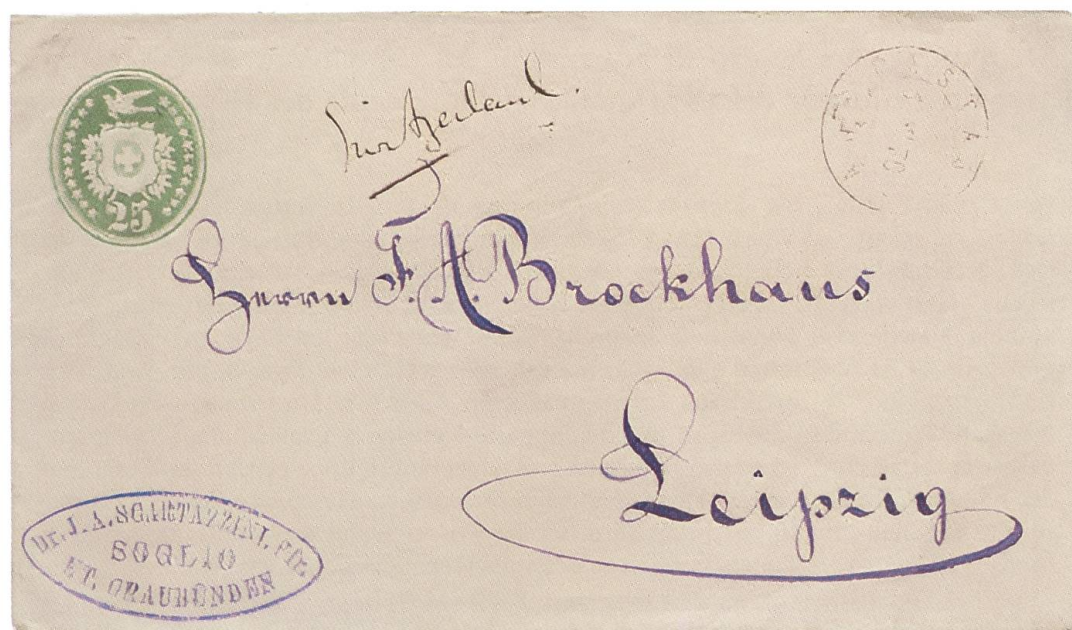 25
Herrn F. A. Brockhaus
Leipzig
Dr. J. A. SCARTAZZINI, Pfr.
SOGLIO
KT. GRAUBÜNDEN